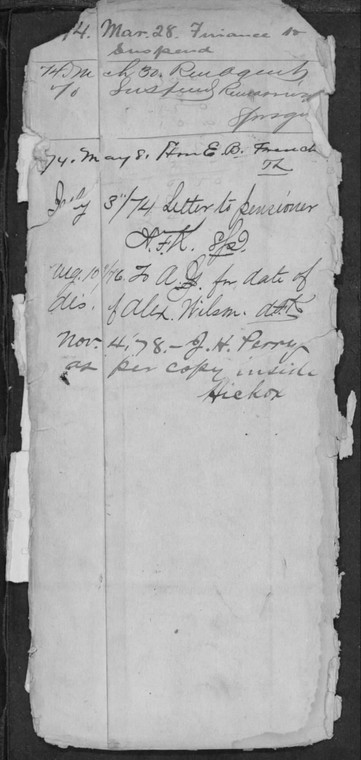 74. Mar. 28. Finance to
Suspend
74. Mch 30. Pen agent
to Suspend
74. May 8. Hon E. B. French
July 3"/74 Letter to pensioner
A.F.K. Spd.
Aug. 10"/76. To A.G. for date of
dis. of Alex. Wilson. A.F.K
Nov. 4, 78. - J. H. Perry
as per copy inside
Hickox